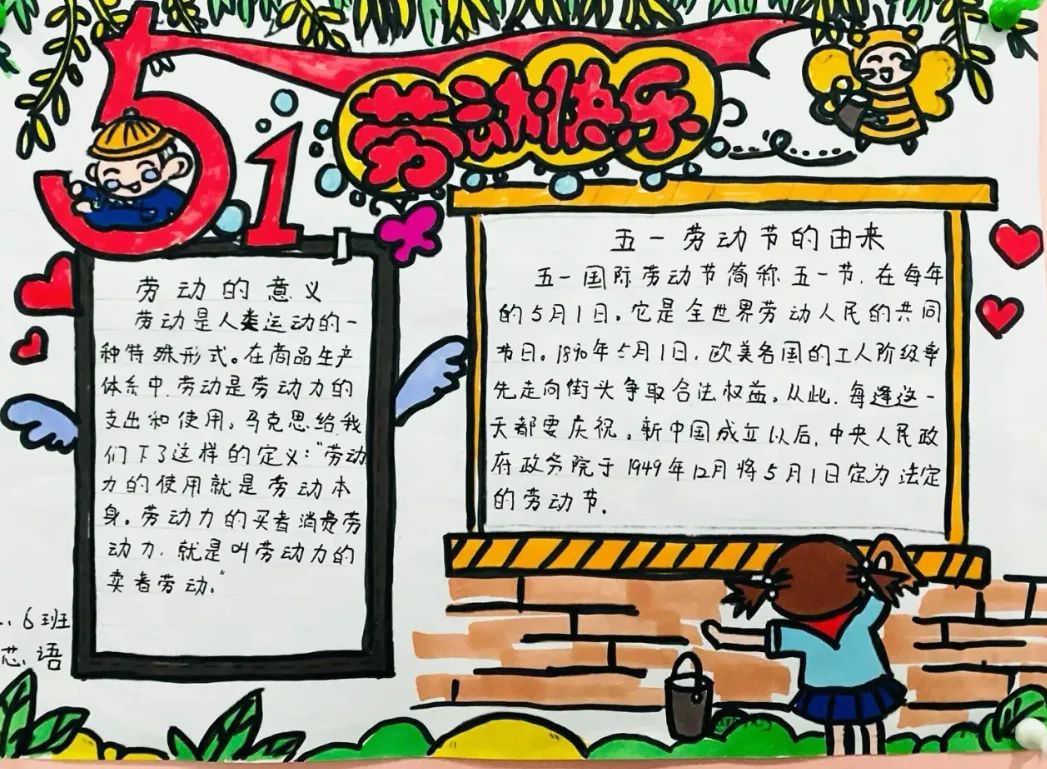 51
劳动快乐
劳动的意义
劳动是人类运动的一
种特殊形式。在商品生产
体系中,劳动是劳动力的
支出和使用。马克思给我
们下了这样的定义:“劳动
力的使用就是劳动本
身。劳动力的买者消费劳
动力,就是叫劳动力的
卖者劳动。”
五一劳动节的由来
五一国际劳动节简称五一节,在每年
的5月1日。它是全世界劳动人民的共同
节日。1890年5月1日,欧美各国的工人阶级率
先走向街头争取合法权益。从此,每逢这一
天都要庆祝。新中国成立以后,中央人民政
府政务院于1949年12月将5月1日定为法定
的劳动节。
6班
芯语